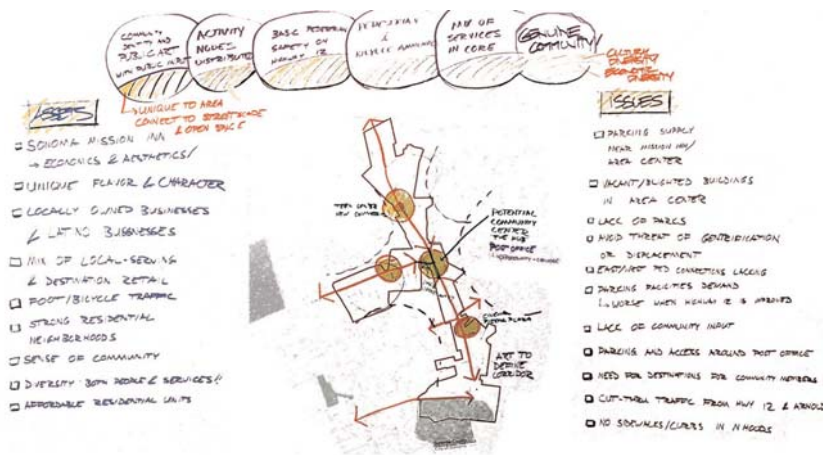 COMMUNITY
IDENTITY AND
PUBLIC ART
WITH PUBLIC INPUT
ACTIVITY
NODES
DISTRIBUTED
BASIC PEDESTRIAN
SAFETY ON
HIGHWAY 12
PEDESTRIAN
&
BICYCLE AMENITIES
MIX OF
SERVICES
IN CORE
GENUINE
COMMUNITY
CULTURAL
DIVERSITY
ECONOMIC
DIVERSITY
→ UNIQUE TO AREA
CONNECT TO STREETSCAPE
& OPEN SPACE
ASSETS
SONOMA MISSION INN
→ ECONOMICS & AESTHETICS/
UNIQUE FLAVOR & CHARACTER
LOCALLY OWNED BUSINESSES
& LATINO BUSINESSES
MIX OF LOCAL-SERVING
& DESTINATION RETAIL
FOOT/BICYCLE TRAFFIC
STRONG RESIDENTIAL
NEIGHBORHOODS
SENSE OF COMMUNITY
DIVERSITY: BOTH PEOPLE & SERVICES!!
AFFORDABLE RESIDENTIAL UNITS
POTENTIAL
COMMUNITY
CENTER
THE HUB
POST OFFICE
PLAZA
ART TO
DEFINE
CORRIDOR
ISSUES
PARKING SUPPLY
NEAR MISSION INN/
AREA CENTER
VACANT/BLIGHTED BUILDINGS
IN AREA CENTER
LACK OF PARKS
AVOID THREAT OF GENTRIFICATION
OR DISPLACEMENT
EAST/WEST PED CONNECTIONS LACKING
PARKING FACILITIES DEMAND
↳ WORSE WHEN HIGHWAY 12 IS IMPROVED
LACK OF COMMUNITY INPUT
PARKING AND ACCESS AROUND POST OFFICE
NEED FOR DESTINATIONS FOR COMMUNITY MEMBERS
CUT-THRU TRAFFIC FROM HWY 12 & ARNOLD
NO SIDEWALKS/CURBS IN N'HOODS